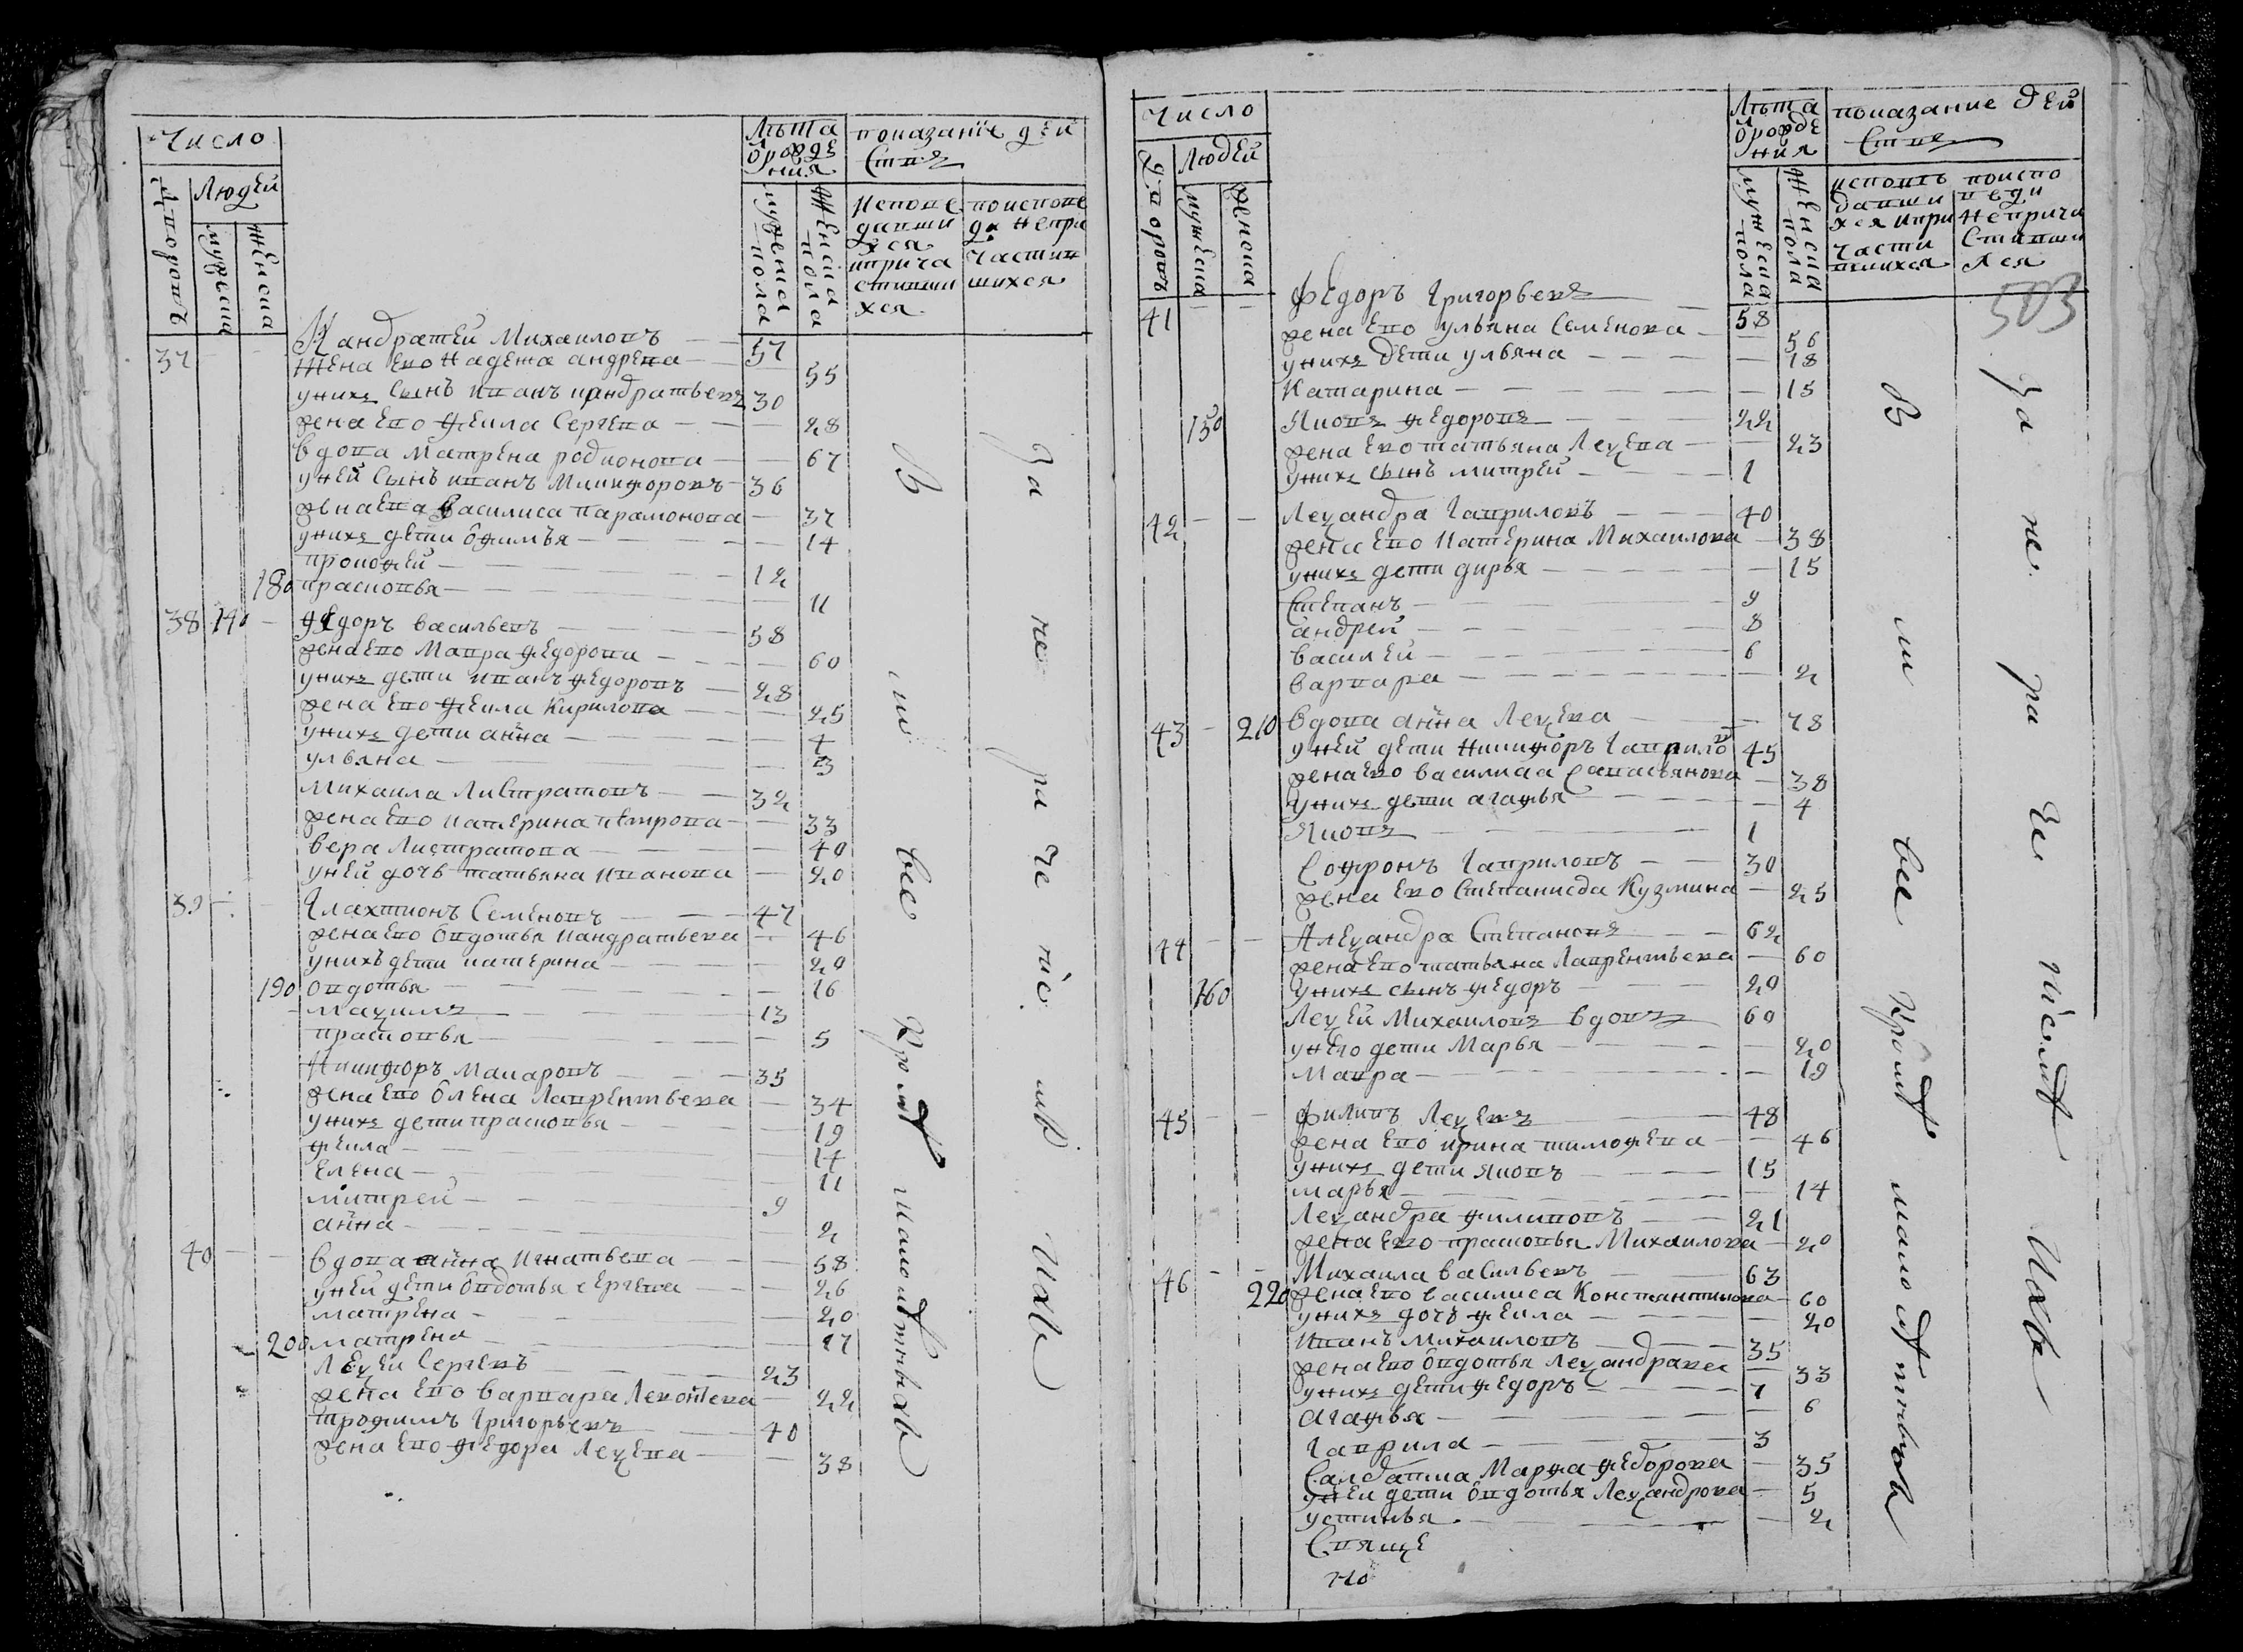 Число
Лѣта
ѿ рожде
ния
показание дей
ства
дворовъ
Людей
мужеска
женска
мужеска пола
женска пола
исповѣ
давши
хся
иприча
стивши
хся
поиспове
да непри
частив
шихся
37 Кандратей Михаиловъ 57
жена ево надежа андрева 55
унихъ сынъ иванъ кандратьевъ 30
жена ево фекла Сергева 28
вдова матрена родионова 67
уней сынъ иванъ Микифоровъ 36
жена ева василиса парамонова 37
унихъ дети офимья 14
прокофей 12
180 прасковья 11
38 140 федоръ васильевъ 58
жена ево мавра федорова 60
унихъ дети иванъ федоровъ 28
жена ево фекла кирилова 25
унихъ дети анна 4
ульяна 3
михаила Листратовъ 32
жена ево катерина петрова 33
вера Листратова 40
уней дочь татьяна иванова 20
39 Глахтионъ Семеновъ 47
жена ево овдотья кандратьева 46
унихъ дети катерина 20
190 овдотья 16
мазимъ 13
прасковья 5
Никифоръ макаровъ 35
жена ево олена Лаврентьева 34
унихъ дети прасковья 19
фекла 17
елена 11
митрей 9
анна 2
40 вдова анна игнатьева 58
уней дети овдотья сергева 26
матрена 20
200 матрена 17
Лезей Сергевъ 23
жена ево варвара Левонтева 22
трофимъ григорьевъ 40
жена ево федора Лезева 38
В ли все кромѣ малолѣтныхъ
За не ра че ние ихъ
Число
Лѣта
ѿ рожде
ния
показание дей
ства
503
дворовъ
Людей
мужеска
женска
мужеска пола
женска пола
исповѣ
давши
хся ипри
части
вшихся
поиспо
веди
неприча
стивши
хся
41 федоръ григорьевъ 58
жена ево ульяна семенова 56
унихъ дети ульяна 18
катарина 15
150 Яковъ федоровъ 22
жена ево татьяна Лезева 23
унихъ сынъ митрей 1
42 Лезандра гавриловъ 40
жена ево катерина Михаилова 38
унихъ дети дарья 15
степанъ 9
андрей 8
василей 6
варвара 2
43 210 вдова анна Лезева 78
уней дети никифоръ гаврило 45
жена ево василиса савастьянова 38
унихъ дети агафья 4
Яковъ 1
софронъ гавриловъ 30
жена ево степанида кузмина 25
44 Алезандра степановъ 62
жена ево татьяна лаврентьева 60
160 унихъ сынъ федоръ 20
Лезей Михаиловъ вдовъ 60
унего дети марья 20
мавра 19
45 филипъ Лезевъ 48
жена ево ирина тимофева 46
унихъ дети яковъ 15
марья 14
Лезандра филиповъ 21
жена ево прасковья Михаилова 20
46 Михаила васильевъ 63
220 жена ево василиса константинова 60
унихъ дочь фекла 20
иванъ михаиловъ 35
жена ево овдотья Лезандрава 33
унихъ дети федоръ 7
агафья 6
гаврила 3
салдатка марфа федорова 35
уней дети овдотья Лезандрова 5
устинья 2
Свяще
но
В ли все кромѣ малолѣтныхъ
За не ра че ниемъ ихъ